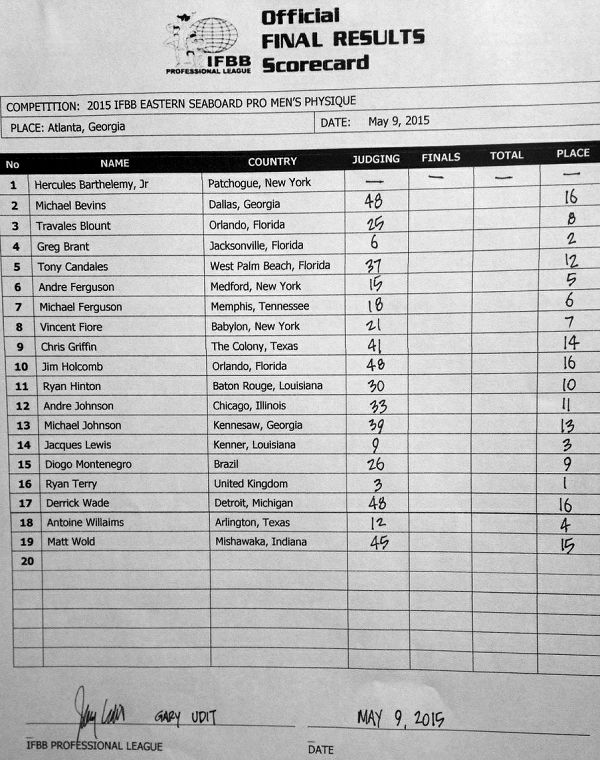 Official
FINAL RESULTS
Scorecard
IFBB
PROFESSIONAL LEAGUE
COMPETITION: 2015 IFBB EASTERN SEABOARD PRO MEN'S PHYSIQUE
PLACE: Atlanta, Georgia DATE: May 9, 2015
No NAME COUNTRY JUDGING FINALS TOTAL PLACE
1 Hercules Barthelemy, Jr Patchogue, New York — — — —
2 Michael Bevins Dallas, Georgia 48 16
3 Travales Blount Orlando, Florida 25 8
4 Greg Brant Jacksonville, Florida 6 2
5 Tony Candales West Palm Beach, Florida 37 12
6 Andre Ferguson Medford, New York 15 5
7 Michael Ferguson Memphis, Tennessee 18 6
8 Vincent Fiore Babylon, New York 21 7
9 Chris Griffin The Colony, Texas 41 14
10 Jim Holcomb Orlando, Florida 48 16
11 Ryan Hinton Baton Rouge, Louisiana 30 10
12 Andre Johnson Chicago, Illinois 33 11
13 Michael Johnson Kennesaw, Georgia 39 13
14 Jacques Lewis Kenner, Louisiana 9 3
15 Diogo Montenegro Brazil 26 9
16 Ryan Terry United Kingdom 3 1
17 Derrick Wade Detroit, Michigan 48 16
18 Antoine Willaims Arlington, Texas 12 4
19 Matt Wold Mishawaka, Indiana 45 15
20
GARY UDIT MAY 9, 2015
IFBB PROFESSIONAL LEAGUE DATE